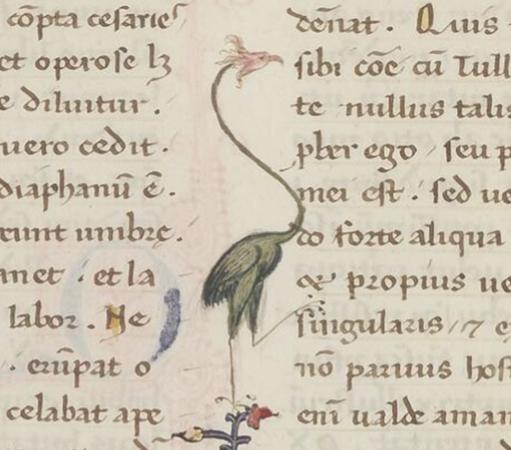 cōpta cesarieˢ
et operose lꝫ
e diluitur.
uero cedit.
diaphanū ē.
eunt umbre.
anet . et la
labor . Ne
. erūpat o
celabat ape
dēnat . Quis
sibi cōe cū Tull
te nullus talis
pber ego / seu p
mei est . sed ue
do forte aliqua
& propius ue
singularis / 7 e
nō paruus host
enī ualde aman